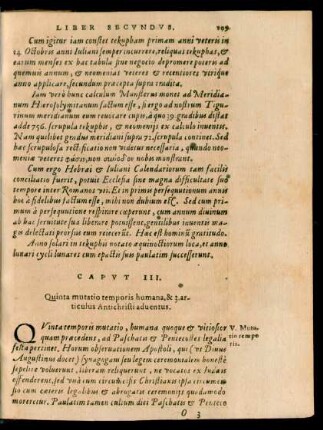 LIBER SECVNDVS. 109
Cum igitur iam constet tekupham primam anni veteris in
14 Octobris anni Iuliani semper incurrere, reliquas tekuphas, &
earum menses ex hac tabula sine negocio depromere poteris ad
quemuis annum, & neomenias veteres & recentiores vtrique
anno applicare, secundum præcepta supra tradita.
Iam verò hunc calculum Munsterus manet ad Meridia-
num Hierosolymitanum factum esse, si ergo ad nostrum Tigu-
rinum meridianum eum reuocare cupis, à quo 39. gradibus distat
adde 756. scrupulos tekuphis, & neomenijs ex calculo inuentis.
Nam quælibet gradus meridiani supra 72. scrupulos continet. Sed
hæc scrupulosa rectificatio non videtur necessaria, quando neo-
meniæ veteres non nobis monstrant.
Cum ergo Hebræi & Iuliani Calendariorum tam facilis
conciliatio fuerit, potuit Ecclesia sine magna difficultate suo
tempore inter Romanos vti. Et in primis persequutionum annis
hoc à fidelibus factum esse, mihi non dubium est. Sed cum pri-
mum à persequutione respirare cœperunt, cum annum diuinum
ab hac seruitute sua liberare potuissent, gentilibus inuentis ma-
gis delectati prorsus eum reiecerũt. Hæc est hominũ gratitudo.
Anno solari in tekuphis notato æquinoctiorum loca, et anno
lunari cycli lunares cum epactis suis paulatim successerunt.
CAPVT III.
Quinta mutatio temporis humana, & 3. ar-
ticulus Antichristi aduentus.
QVinta temporis mutatio, humana quoque & vitiosior
quam præcedens, ad Paschatis & Pentecostes legalia
festa pertinet. Horum obseruationem Apostoli, qui (vt Diuus
Augustinus docet) synagogam seu legem ceremonialem honestè
sepelire voluerunt, liberam reliquerunt, vel ne exemplo Iudæos
offenderent, sed vnà cum circumcisis Christianis ipsa circumcisio
cum cæteris legalibus & abrogatis ceremonijs quodammodo
moreretur. Paulatim tamen cultum diei Paschatis & Penteco
V. Muta-
tio tempo-
ris.
O 3